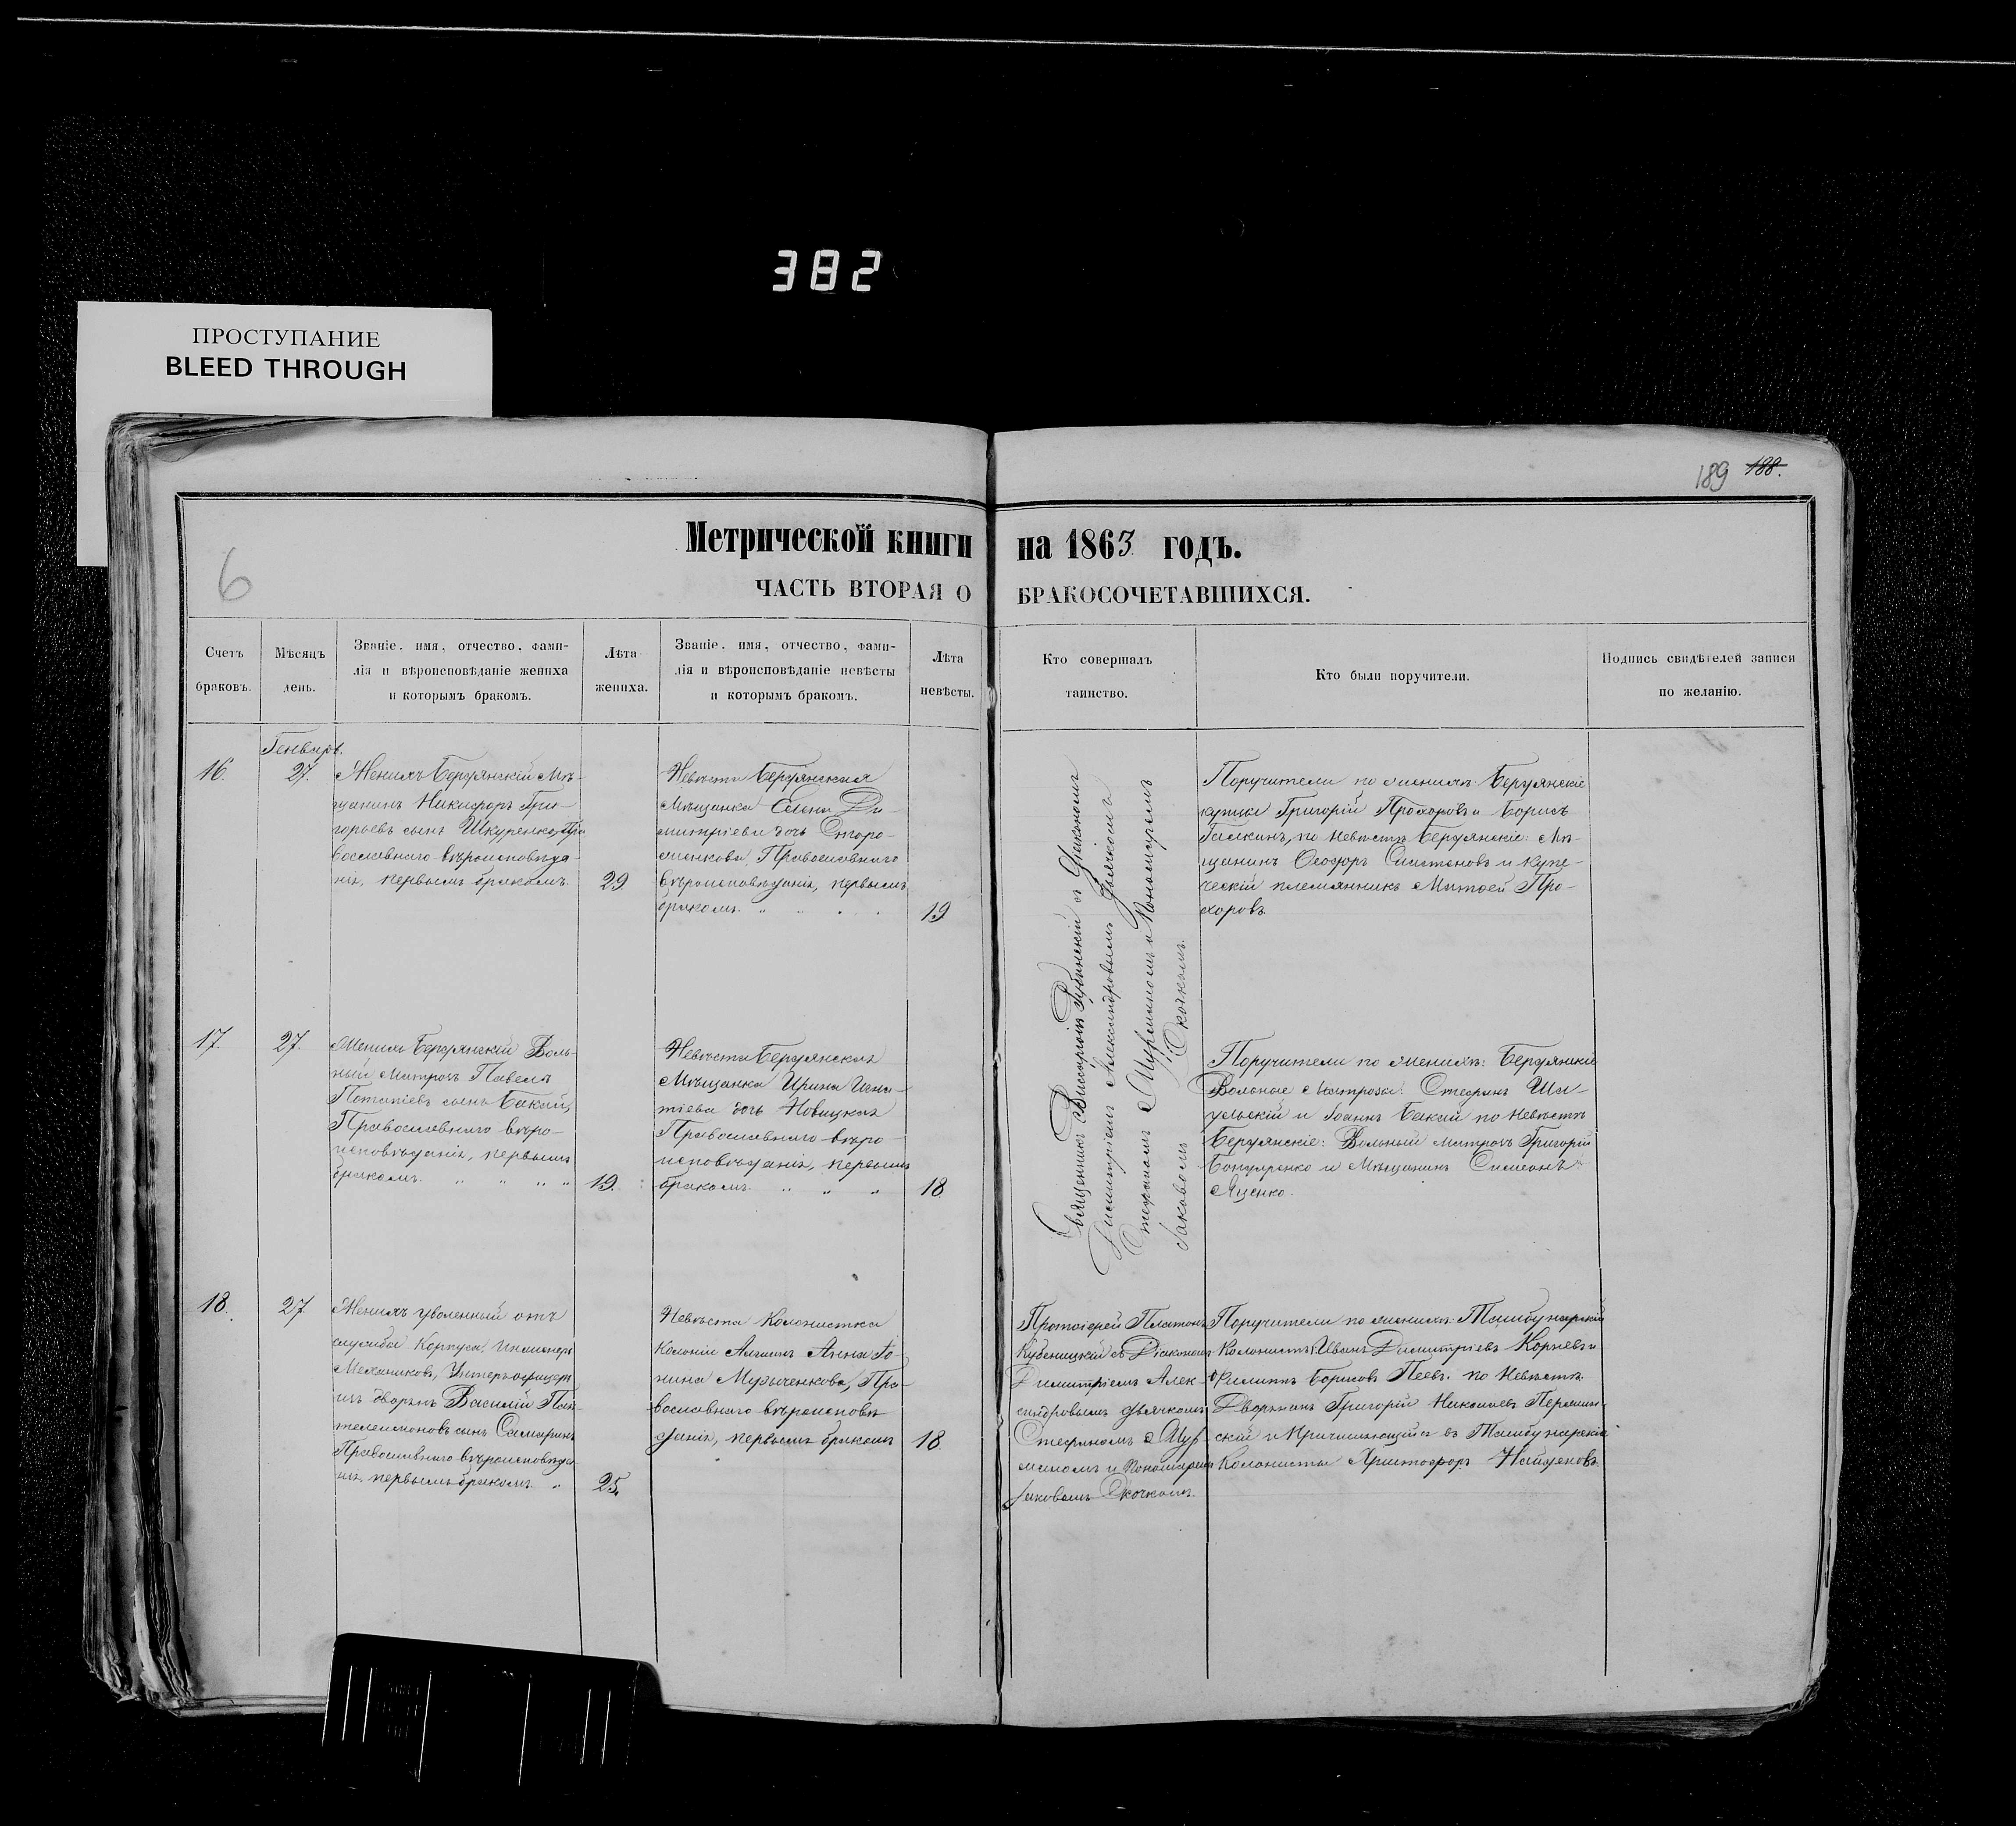 382
ПРОСТУПАНИЕ
BLEED THROUGH
189 188.
6
Метрической книги на 1863 годъ.
ЧАСТЬ ВТОРАЯ О БРАКОСОЧЕТАВШИХСЯ.
Счетъ
браковъ.
Мѣсяцъ
день.
Званіе, имя, отчество, фами-
лія и вѣроисповѣданіе жениха
и которымъ бракомъ.
Лѣта
жениха.
Званіе, имя, отчество, фами-
лія и вѣроисповѣданіе невѣсты
и которымъ бракомъ.
Лѣта
невѣсты.
Кто совершалъ
таинство.
Кто были поручители.
Подпись свидѣтелей записи
по желанію.
Генваря.
16.
27.
Женихъ Бердянскій Мѣ-
щанинъ Никифоръ Гри-
горьевъ сынъ Шкуренко, Пра
вославнаго вѣроисповѣда-
нія, первымъ бракомъ.
29
Невѣста Бердянская
Мѣщанка Елена Ди-
митріева дочь Сторо-
женкова, Православнаго
вѣроисповѣданія, первымъ
бракомъ. " " " "
19
Священникъ Виссаріонъ Дубинскій съ Діакономъ
Димитріемъ Александровымъ Дьячкомъ
Стефаномъ и Пономаремъ
Іаковомъ Скочкомъ.
Поручители по женихѣ: Бердянскіе
купцы Григорій Прохоровъ и Борисъ
Галкинъ, по невѣстѣ Бердянскіе: Мѣ-
щанинъ Ѳеодоръ и купе-
ческій племянникъ Матѳей Про-
хоровъ.
17.
27.
Женихъ Бердянскій Воль-
ный Матросъ Павелъ
Потапіевъ сынъ Бакай,
Православнаго вѣро-
исповѣданія, первымъ
бракомъ. " " " "
19.
Невѣста Бердянская
Мѣщанка Ирина Игна-
тіева дочь Новицкая
Православнаго вѣро-
исповѣданія, первымъ
бракомъ. " " "
18
Поручители по женихѣ: Бердянскіе
Вольные Матрозы: Стефанъ Ши-
ульскій и Іоаннъ Бакай по невѣстѣ
Бердянскіе: Вольный матросъ Григорій
Бондаренко и Мѣщанинъ Симеонъ
Яценко.
18.
27
Женихъ уволенный отъ
службы Корпуса, инженеръ
Механиковъ, Унтеръ-офицеръ
изъ дворянъ Василій Пан
телеимоновъ сынъ Самаринъ
Православнаго вѣроисповѣда
нія, первымъ бракомъ. "
25.
Невѣста Колонистка
Колоніи Анна Іо-
нина Музыченкова, Пра-
вославнаго вѣроисповѣ
данія, первымъ бракомъ
18.
Протоіерей Платонъ
Кубеницкій съ Діакономъ
Димитріемъ Алек-
сандровымъ Дьячкомъ
Стефаномъ
и Пономаремъ
Іаковомъ Скочкомъ.
Поручители по женихѣ: Тамбунарскій
Колонистъ Иванъ Димитріевъ Корневъ и
Филиппъ Борисовъ Пеевъ. по Невѣстѣ
Дворянинъ Григорій Николаевъ
скій и Причисляющійся въ Тамбунарскіе
Колонисты Христофоръ Найденовъ.